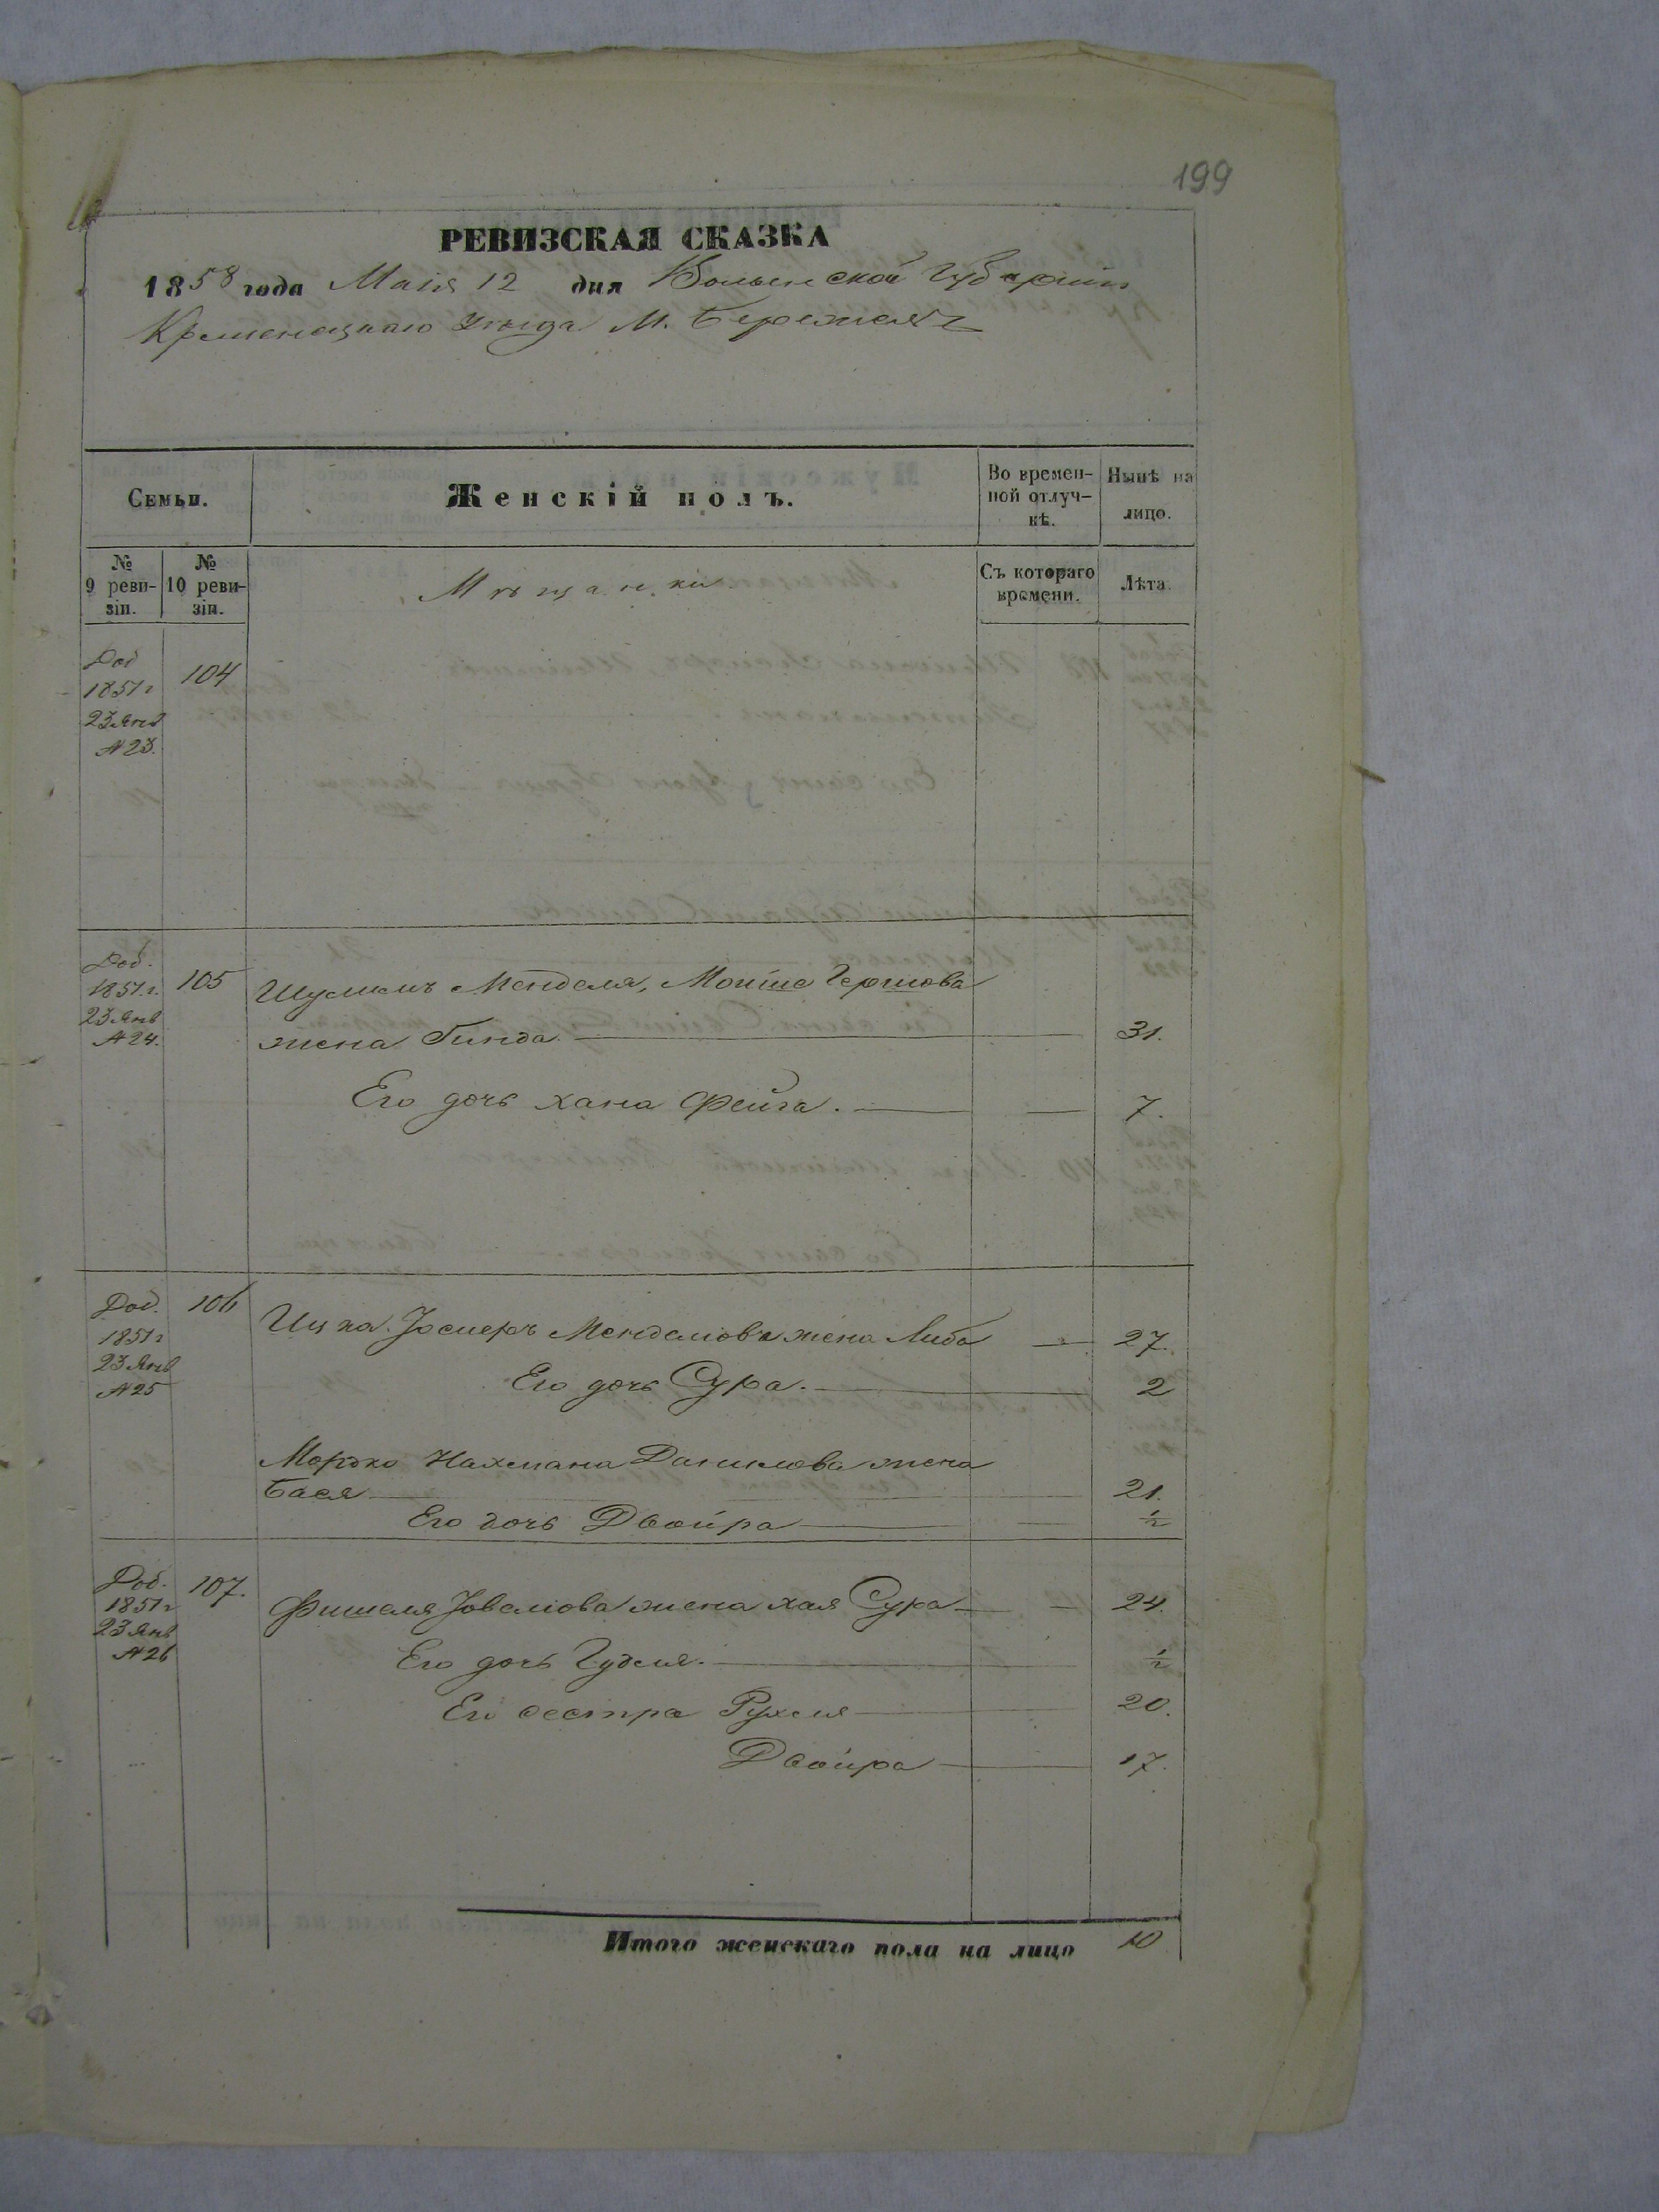 199
РЕВИЗСКАЯ СКАЗКА
1858 года Маія 12 дня Волынской Губерніи
Кременецкаго Уѣзда М. Бережецъ
Семьи. Женскій полъ. Во времен-ной отлуч-кѣ. Нынѣ на лицо.
№ 9 реви-зіи. № 10 реви-зіи. Мѣщанки Съ котораго времени. Лѣта.
Доб 1851 г 23 Янв № 23. 104
Доб. 1851 г. 23 Янв № 24. 105 Шулимъ Менделя, Мойше Гершова
жена Гинда 31.
Его дочь Хана Фейга. 7.
Дод. 1851 г 23 Янв № 25 106 Ицка Іосиеръ Менделіовa жена Либа 27.
Его дочь Сура. 2
Мордко Нахмана Данилова жена
Бася 21.
Его дочь Двойра ½
Доб. 1851 г 23 Янв № 26 107. Фишеля Іовеліова жена Хая Сура 24.
Его дочь Гудля. ½
Его сестра Рухля 20.
Двойра 17.
Итого женскаго пола на лицо 10